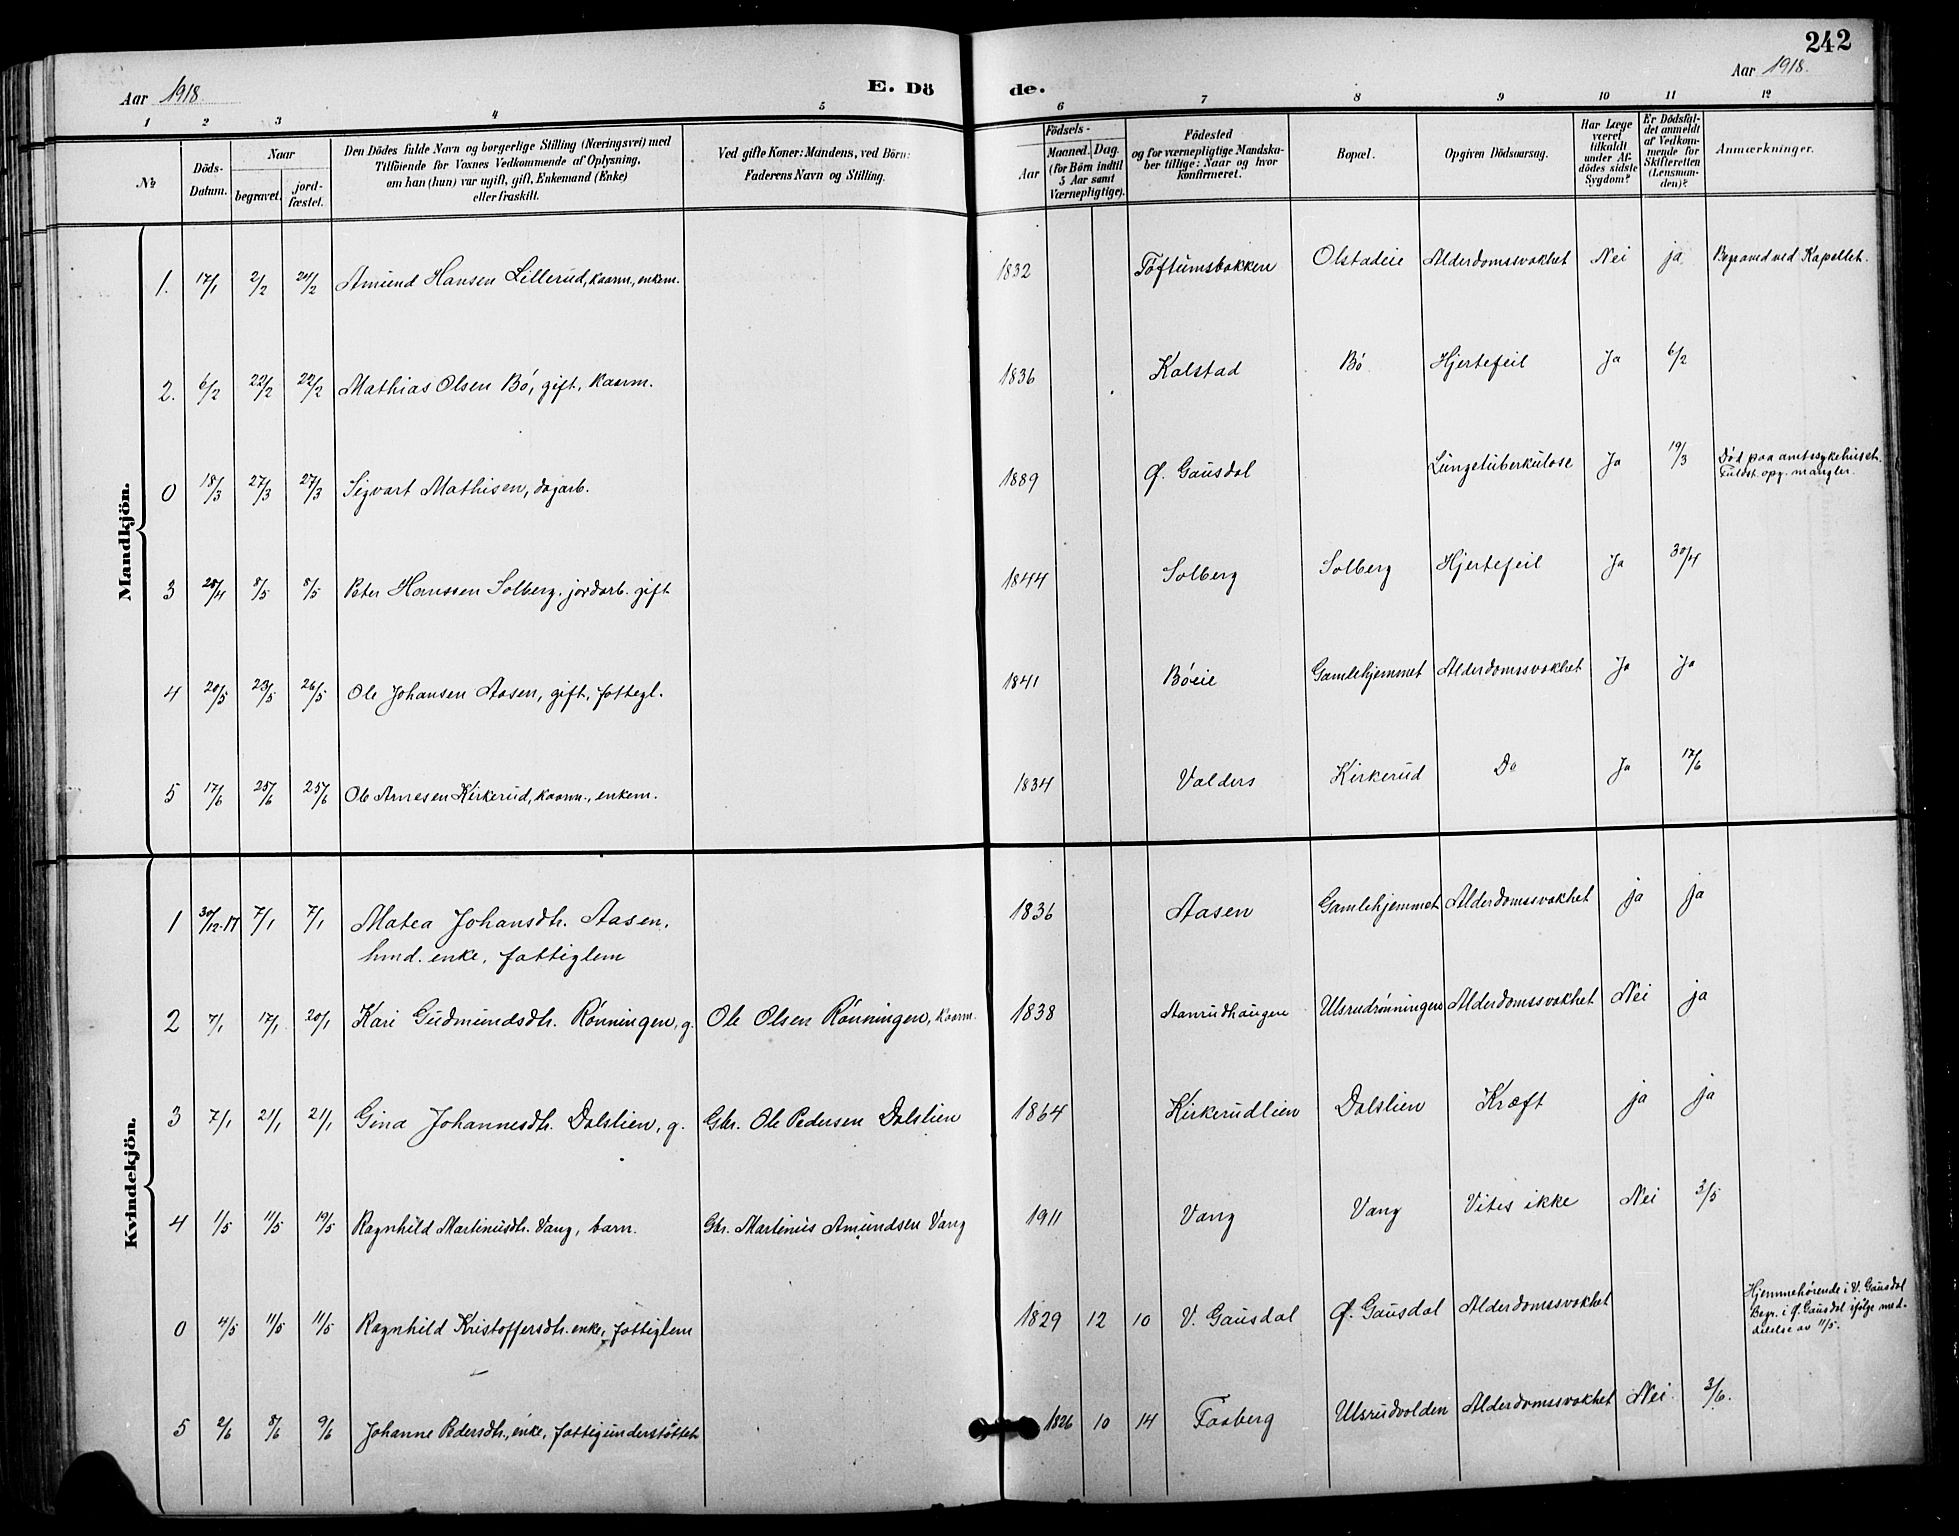 242
Aar 1918.
E. Dö
de.
Aar 1918.
1 2 3 4 5 6 7 8 9 10 11 12
№
Döds-
Datum.
Naar
begravet.
jord-
fæstet.
Den Dödes fulde Navn og borgerlige Stilling (Næringsvei) med
Tilföiende for Voxnes Vedkommende af Oplysning,
om han (hun) var ugift, gift, Enkemand (Enke)
eller fraskilt.
Ved gifte Koner: Mandens, ved Börn:
Faderens Navn og Stilling.
Födsels-
Aar
Maaned. Dag.
(for Börn indtil
5 Aar samt
Værnepligtige).
Födested
og for værnepligtige Mandska-
ber tillige: Naar og hvor
konfirmeret.
Bopæl.
Opgiven Dödsaarsag.
Har Læge
været
tilkaldt
under Af-
dödes sidste
Sygdom?
Er Dödsfal-
det anmeldt
af Vedkom-
mende for
Skifteretten
(Lensman-
den)?
Anmærkninger.
Mandkjön.
1. 17/1 2/2 24/2 Amund Hansen Lillerud, kaarm., enkem. 1832 Toftumsbakken Olstadeie Alderdomssvakhet Nei ja Begraved ved Kapellet.
2. 6/2 22/2 22/2 Mathias Olsen Bö, gift, kaarm. 1836 Kalstad Bö Hjertefeil Ja 6/2
0 18/3 27/3 27/3 Sigvart Mathisen, dagarb. 1889 Ø. Gausdal Lungetuberkulose Ja 19/3 Død paa amtssykehuset.
Fuldst. opg. mangler.
3 28/4 8/5 8/5 Peter Hanssen Solberg, jordarb. gift 1844 Solberg Solberg Hjertefeil Ja 30/4
4 20/5 23/5 26/5 Ole Johansen Aasen, gift, fattigl. 1841 Böeie Gamlehjemmet Alderdomssvakhet Ja Ja
5 17/6 25/6 25/6 Ole Arnesen Kirkerud, kaarm., enkem. 1834 Valders Kirkerud Do Ja 17/6
Kvindekjön.
1 30/12-17 7/1 7/1 Matea Johansdtr. Aasen, 1836 Aasen Gamlehjemmet Alderdomssvakhet ja ja
hmd. enke, fattiglem
2 7/1 17/1 20/1 Kari Gudmundsdtr. Rönningen, g. Ole Olsen Rönningen, kaarm. 1838 Aanrudhaugen Ulsrudrönningen Alderdomssvakhet Nei ja
3 7/1 21/1 21/1 Gina Johannesdtr. Dalslien, g. Gbr. Ole Pedersen Dalslien 1864 Kirkerudlien Dalslien Kræft ja ja
4 1/5 11/5 19/5 Ragnhild Martinusdtr. Vang, barn. Gbr. Martinus Amundsen Vang 1911 Vang Vang Vites ikke Nei 3/5
0 4/5 11/5 11/5 Ragnhild Kristoffersdtr. enke, fattiglem 1829 12 10 V. Gausdal Ø. Gausdal Alderdomssvakhet Hjemmehörende i V. Gausdal
Begr. i Ø. Gausdal ifölge med-
delelse av 11/5.
5 2/6 8/6 9/6 Johanne Pedersdtr., enke, fattigunderstöttet 1826 10 14 Faaberg Ulsrudvolden Alderdomssvakhet Nei 3/6.